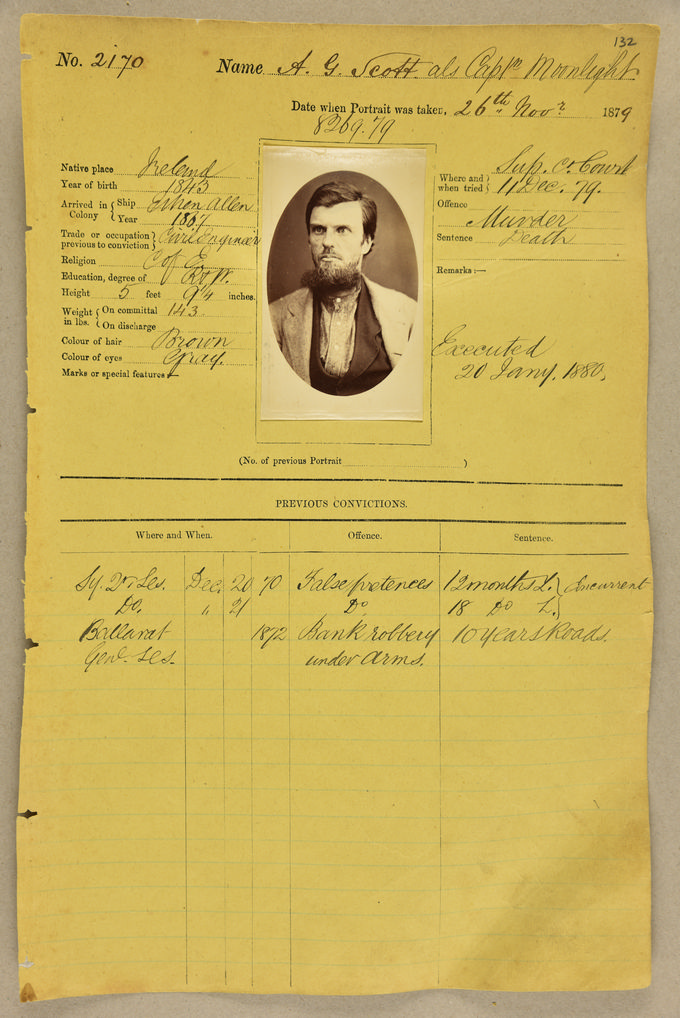 132
No. 2170 Name A. G. Scott als Captn Moonlight
Date when Portrait was taken, 26th Novr 1879
8269.79
Native place Ireland
Year of birth 1843
Arrived in Colony { Ship Ethan Allen
Year 1867
Trade or occupation previous to conviction } Civil Engineer
Religion C of E
Education, degree of R & W.
Height 5 feet 9 1/4 inches.
Weight in lbs. { On committal 143
On discharge
Colour of hair Brown
Colour of eyes Gray.
Marks or special features:—
Where and when tried } Sup. Cr. Court
11 Dec. 79.
Offence
Murder
Sentence Death
Remarks:—
Executed
20 Jany. 1880.
(No. of previous Portrait )
PREVIOUS CONVICTIONS.
Where and When. Offence. Sentence.
Sy. Qr Ses. Dec. 20 70 False pretences 12 months L. } Concurrent
Do. " 21 Do 18 Do L. }
Ballarat 1872 Bank robbery 10 years Roads.
Genl. Ses. under arms.